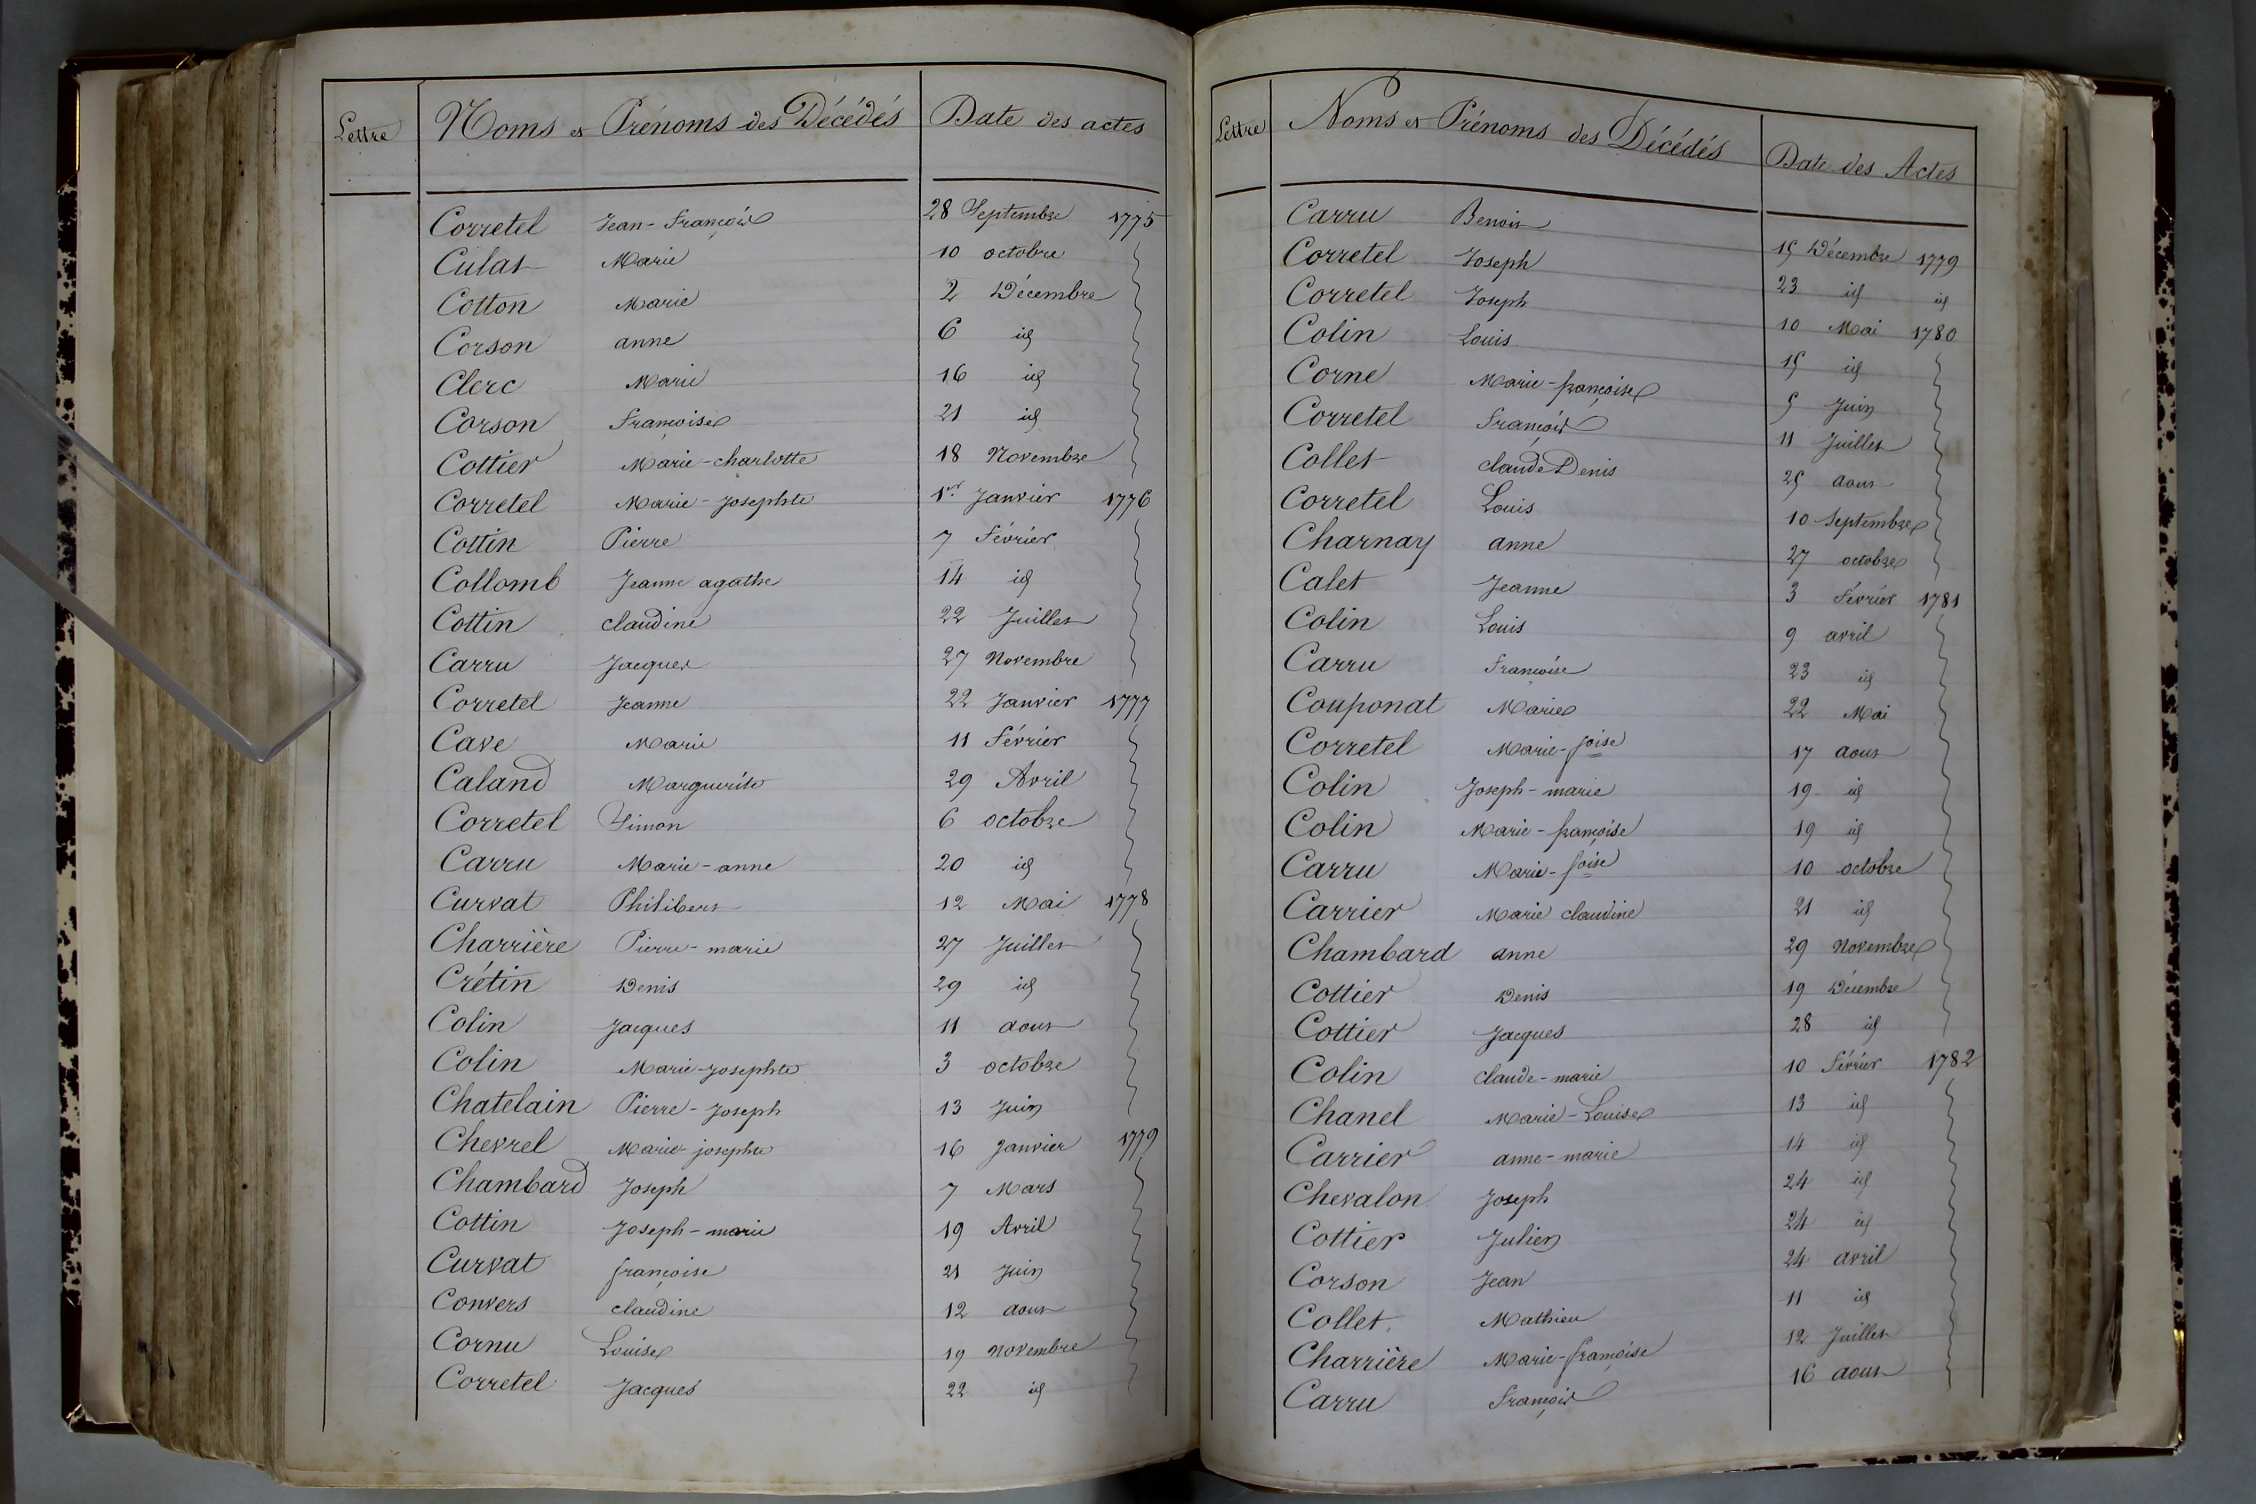 Lettre Noms et Prénoms des Décédés Date des actes
Corretel Jean-François 28 Septembre 1775
Culat Marie 10 octobre
Cotton Marie 2 Décembre
Corson anne 6 id
Clerc Marie 16 id
Corson Françoise 21 id
Cottier Marie-charlotte 18 Novembre
Corretel Marie-Josephte 1er Janvier 1776
Cottin Pierre 7 Février
Collomb Jeanne agathe 14 id
Cottin claudine 22 Juillet
Carru Jacques 27 Novembre
Corretel Jeanne 22 Janvier 1777
Cave Marie 11 Février
Caland Marguerite 29 Avril
Corretel Simon 6 octobre
Carru Marie-anne 20 id
Curvat Philibert 12 Mai 1778
Charrière Pierre-marie 27 Juillet
Crétin Denis 29 id
Colin Jacques 11 aout
Colin Marie-Josephte 3 octobre
Chatelain Pierre-Joseph 13 Juin
Chevrel Marie-josephte 16 Janvier 1779
Chambard Joseph 7 Mars
Cottin Joseph-marie 19 Avril
Curvat françoise 21 Juin
Convers claudine 12 aout
Cornu Louise 19 novembre
Corretel Jacques 22 id
Lettre Noms et Prénoms des Décédés Date des Actes
Carru Benoit 15 Décembre 1779
Corretel Joseph 23 id id
Corretel Joseph 10 Mai 1780
Colin Louis 15 id
Corne Marie-françoise 5 Juin
Corretel François 11 Juillet
Collet claude Denis 25 aout
Corretel Louis 10 Septembre
Charnay anne 27 octobre
Calet Jeanne 3 Février 1781
Colin Louis 9 avril
Carru Françoise 23 id
Couponat Marie 22 Mai
Corretel Marie-foise 17 aout
Colin Joseph-marie 19 id
Colin Marie-françoise 19 id
Carru Marie-foise 10 octobre
Carrier Marie claudine 21 id
Chambard anne 29 Novembre
Cottier Denis 19 Décembre
Cottier Jacques 28 id
Colin claude-marie 10 Février 1782
Chanel Marie-Louise 13 id
Carrier anne-marie 14 id
Chevalon Joseph 24 id
Cottier Julien 24 id
Corson Jean 24 avril
Collet Mathieu 11 id
Charrière Marie-françoise 12 Juillet
Carru François 16 aout